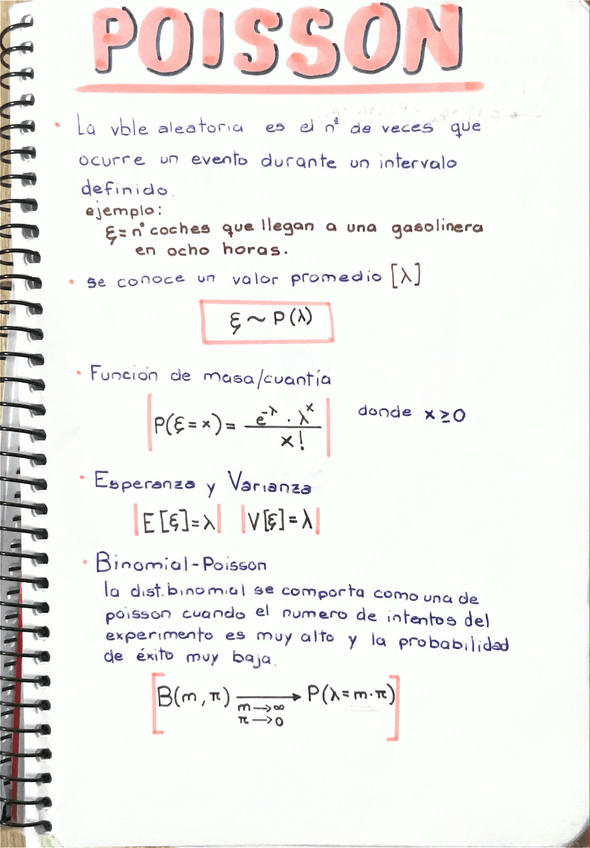 POISSON
• La vble aleatoria es el nº de veces que
ocurre un evento durante un intervalo
definido.
ejemplo:
ξ = nº coches que llegan a una gasolinera
en ocho horas.
• se conoce un valor promedio [λ]
ξ ~ P(λ)
• Función de masa/cuantía
P(ξ = x) = e^-λ · λ^x / x! donde x ≥ 0
• Esperanza y Varianza
|E[ξ] = λ| |V[ξ] = λ|
• Binomial-Poisson
la dist. binomial se comporta como una de
poisson cuando el numero de intentos del
experimento es muy alto y la probabilidad
de éxito muy baja.
[B(m, π) → P(λ = m·π)]
m → ∞
π → 0